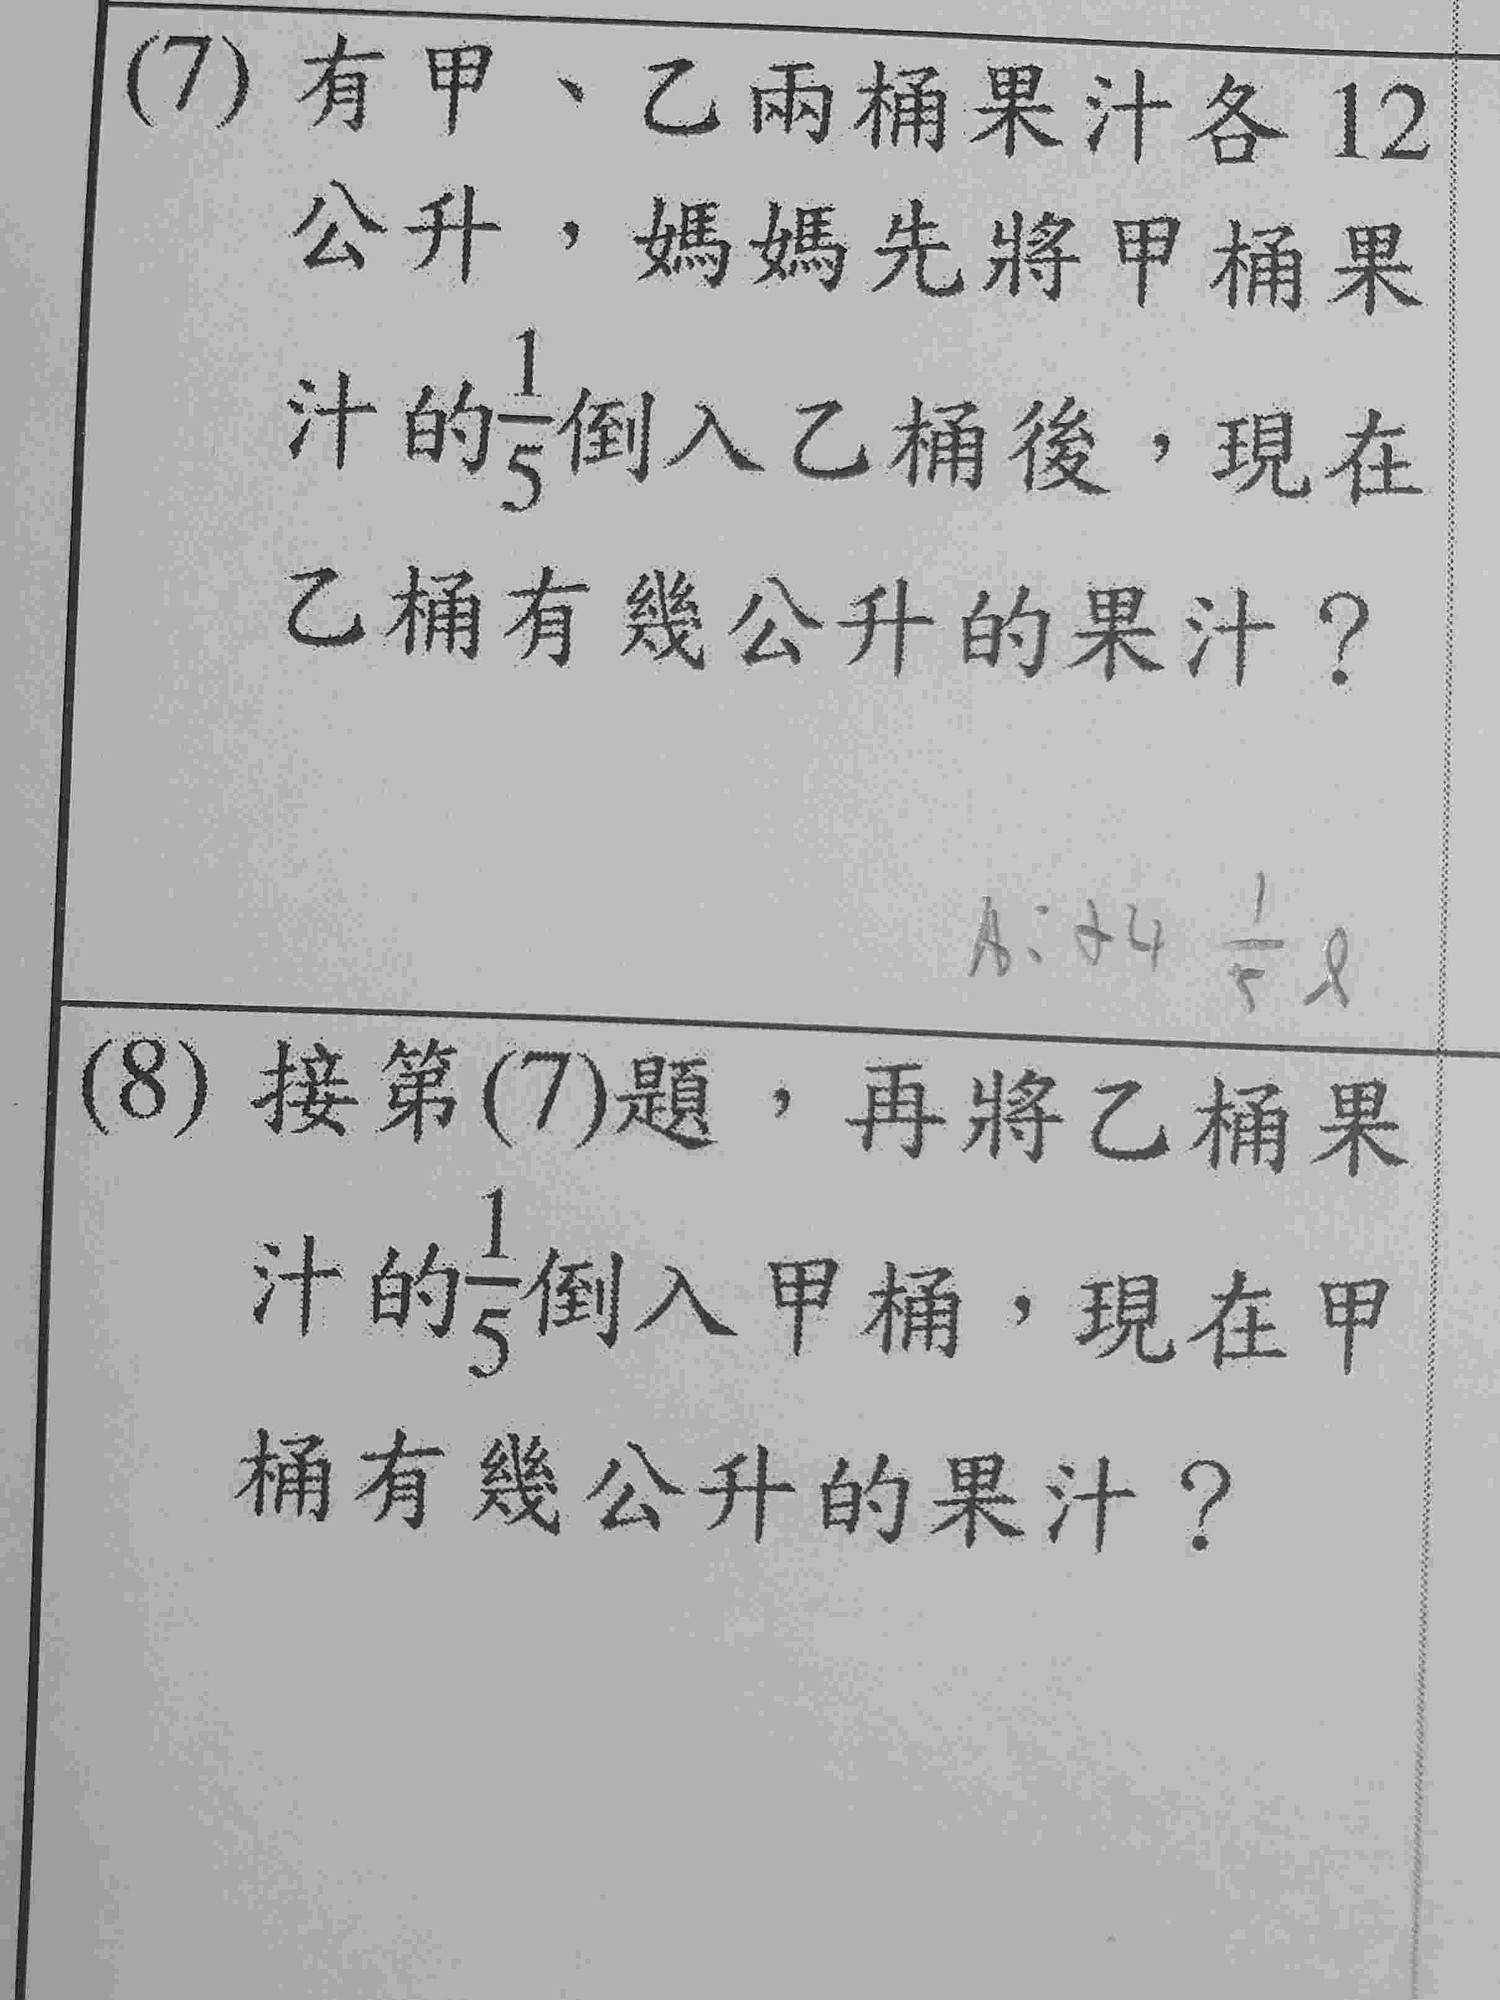 (7) 有甲、乙兩桶果汁各 12
公升，媽媽先將甲桶果
汁的1/5倒入乙桶後，現在
乙桶有幾公升的果汁？
A: 24 1/5 l
(8) 接第(7)題，再將乙桶果
汁的1/5倒入甲桶，現在甲
桶有幾公升的果汁？